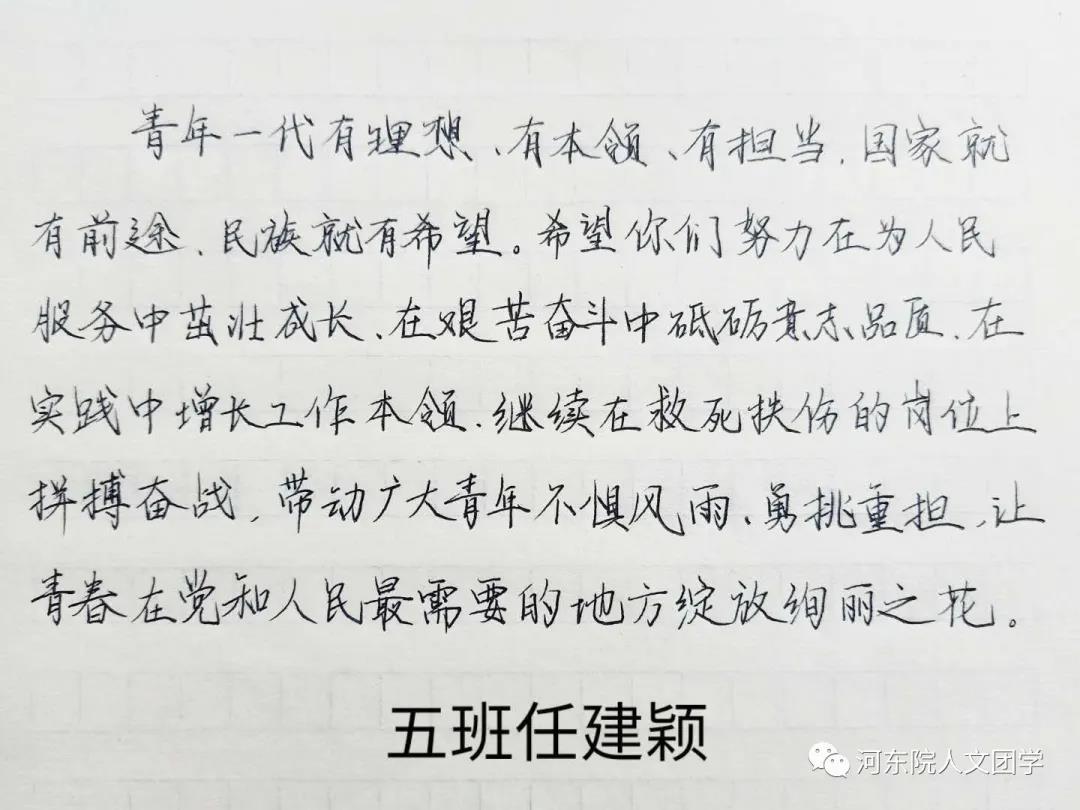 青年一代有理想、有本领、有担当,国家就
有前途,民族就有希望。希望你们努力在为人民
服务中茁壮成长、在艰苦奋斗中砥砺意志品质、在
实践中增长工作本领,继续在救死扶伤的岗位上
拼搏奋战,带动广大青年不惧风雨、勇挑重担,让
青春在党和人民最需要的地方绽放绚丽之花。
五班任建颖
河东院人文团学